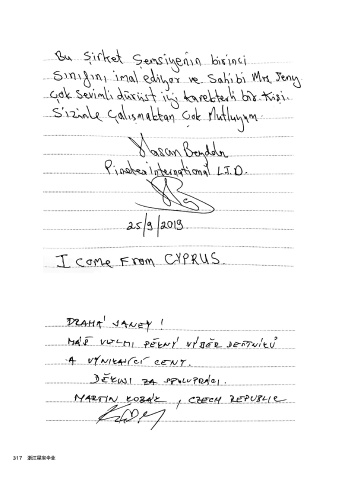 Bu Şirket Şemsiyenin birinci
Sınıfını imal ediyor ve Sahibi Mrs Jeny
Çok Sevimli dürüst iyi karekterli bir Kişi.
Sizinle Çalışmaktan Çok Mutluyum
Hasan
International L.T.D.
25/9/2019
I come From CYPRUS.
DRAHÁ JANEY!
MÁŠ VELMI PĚKNÝ VÝBĚR DEŠTNÍKŮ
A VYNIKAJÍCÍ CENY.
DĚKUJI ZA SPOLUPRÁCI.
MARTIN KOZÁK, CZECH REPUBLIC
317